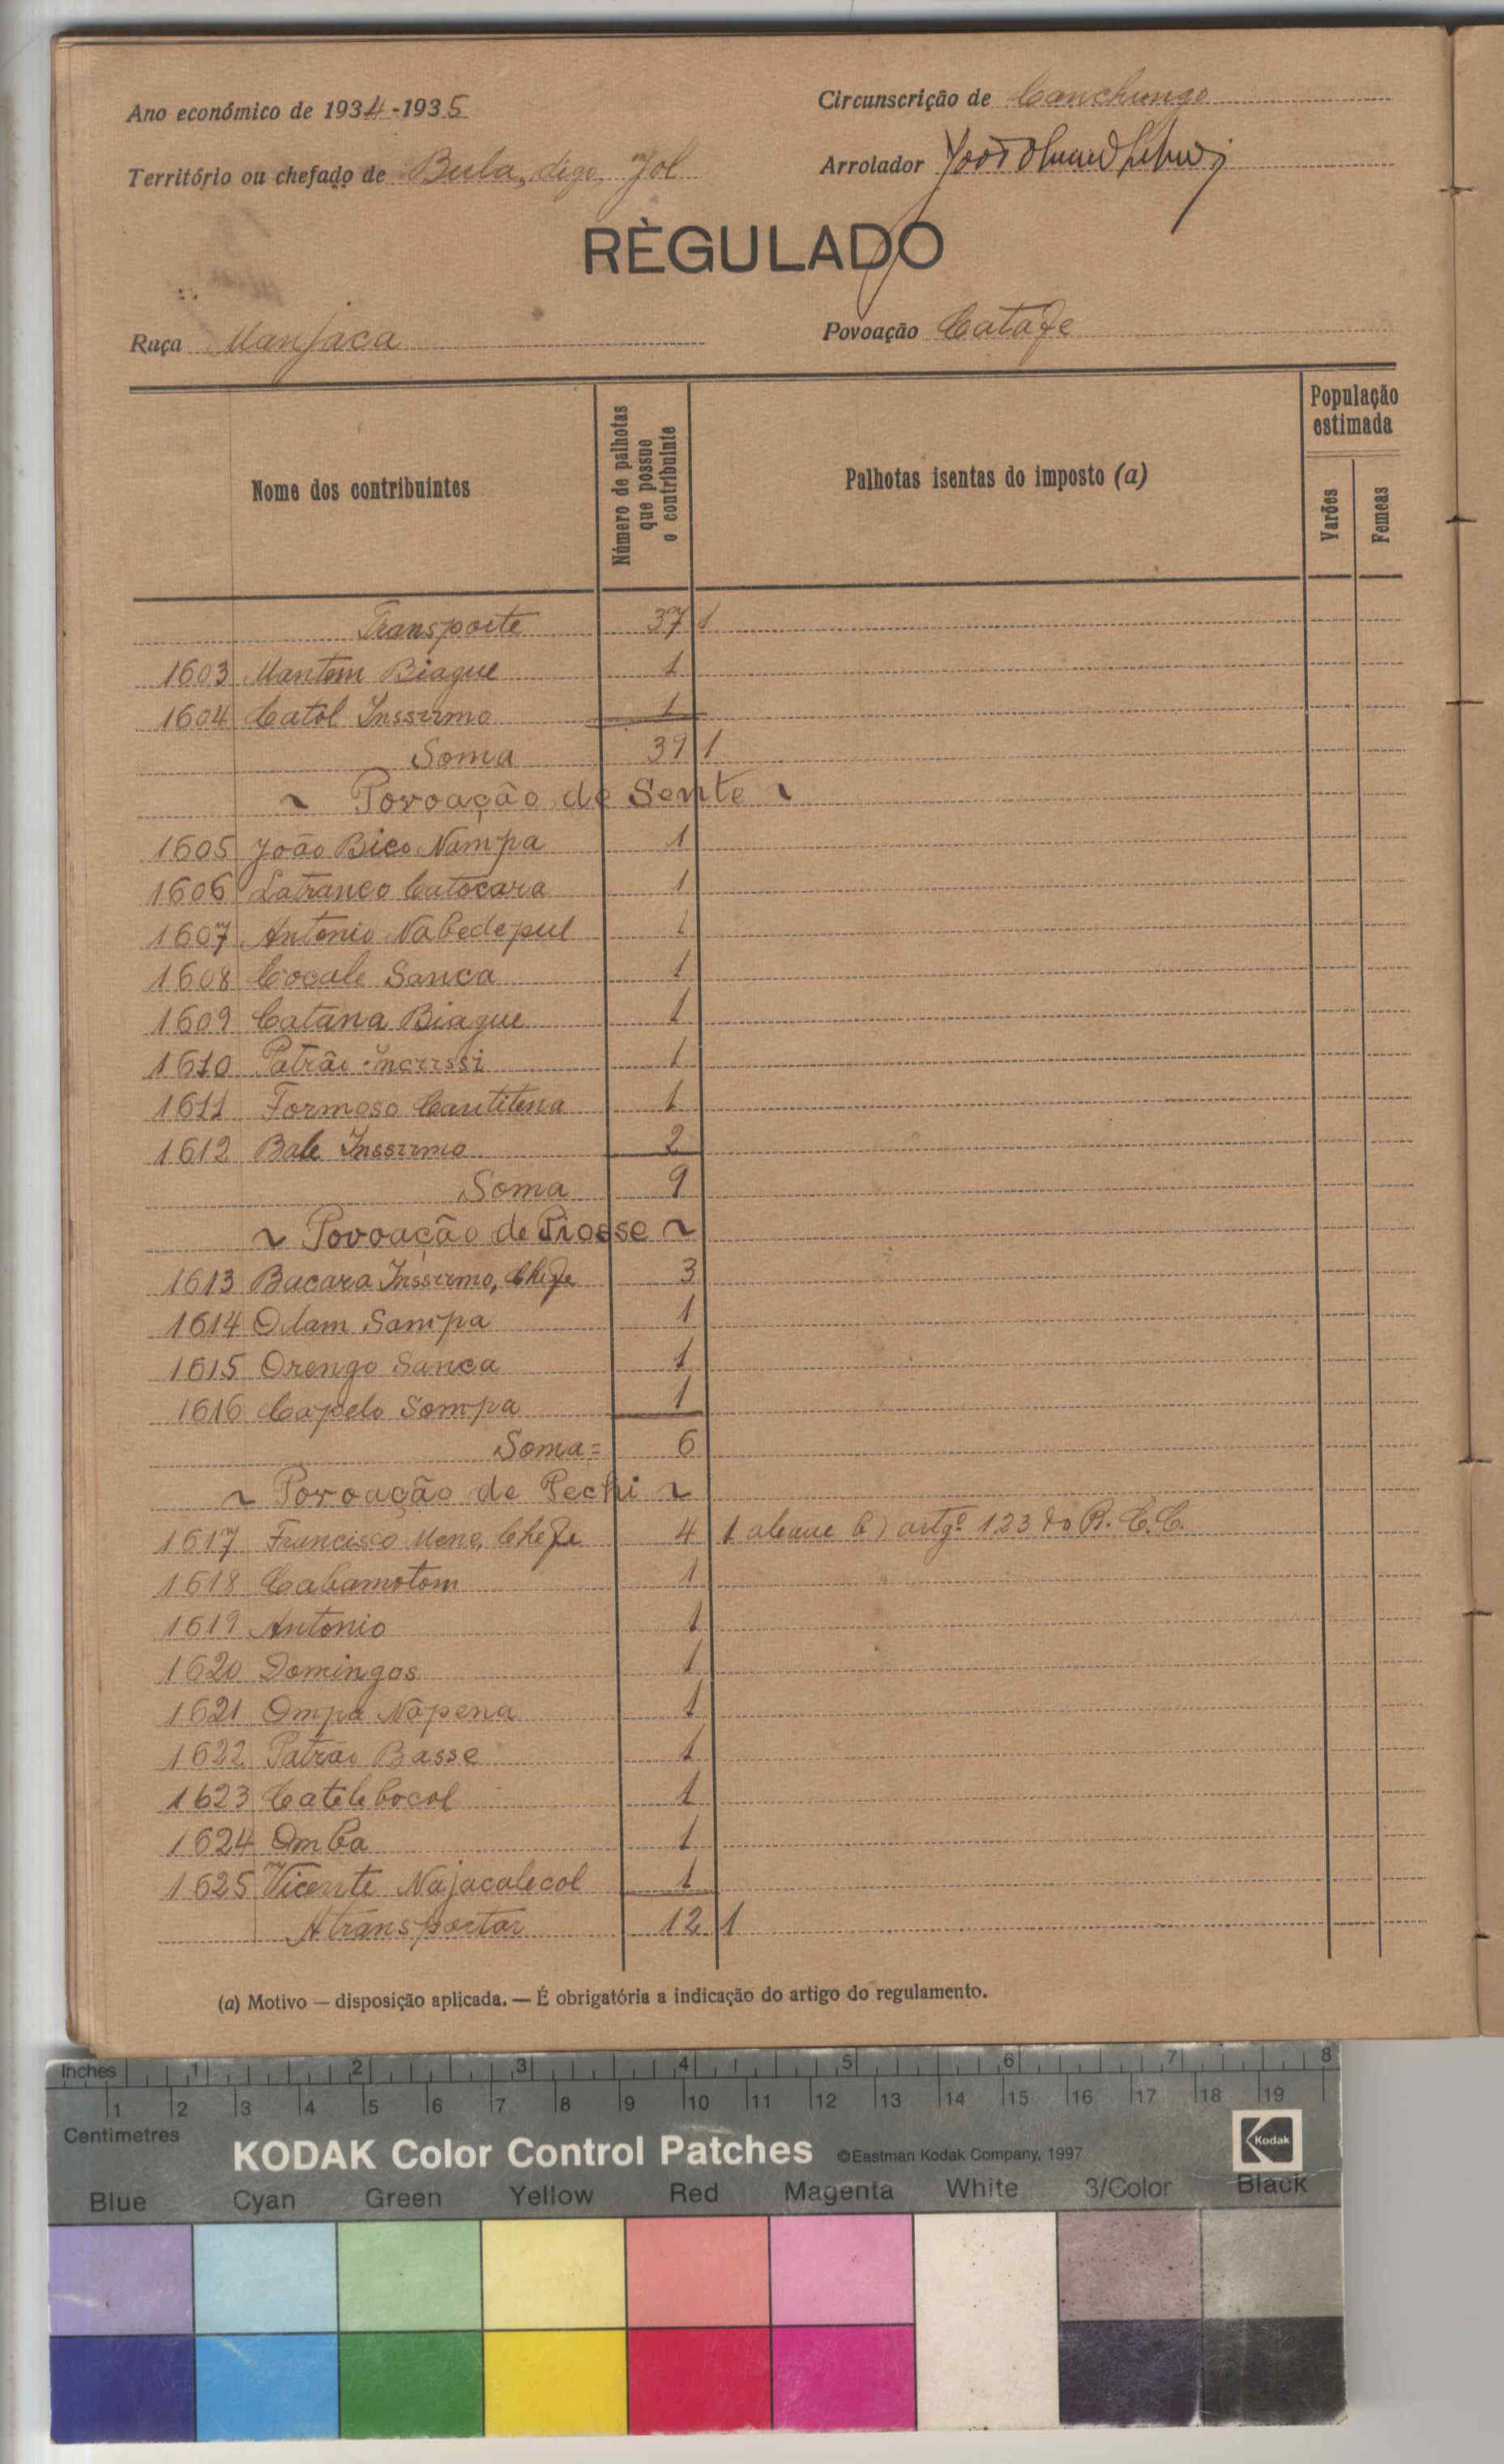 Ano económico de 1934-1935
Circunscrição de Canchungo
Território ou chefado de Bula, digo, Jol
Arrolador
RÈGULADO
Raça Manjaca
Povoação Catafe
Nome dos contribuintes
Número de palhotas que possue o contribuinte
Palhotas isentas do imposto (a)
População estimada
Varões
Femeas
Transporte 37 1
1603 Mantem Biague 1
1604 Catol Inssumo 1
Soma 39 1
~ Povoação de Sente ~
1605 João Bico Nampa 1
1606 Latranco Catocara 1
1607 Antonio Nabedepul 1
1608 Cocale Sanca 1
1609 Catana Biague 1
1610 Patrão 1
1611 Formoso Cautitena 1
1612 Bale Inssumo 2
Soma 9
~ Povoação de Piosse ~
1613 Bacara Inssumo, Chefe 3
1614 Odam Sampa 1
1615 Orengo Sanca 1
1616 Capelo Sampa 1
Soma= 6
~ Povoação de Pechi ~
1617 Francisco Mene, Chefe 4 1 alcanc b) artgº 123 do R. C. C.
1618 Cabamotom 1
1619 Antonio 1
1620 Domingos 1
1621 Ompa Napena 1
1622 Patrão Basse 1
1623 Catelebocol 1
1624 Omba 1
1625 Vicente Najacalecol 1
A transportar 12 1
(a) Motivo — disposição aplicada. — É obrigatória a indicação do artigo do regulamento.
Inches 1 2 3 4 5 6 7 8
1 2 3 4 5 6 7 8 9 10 11 12 13 14 15 16 17 18 19
Centimetres
KODAK Color Control Patches ©Eastman Kodak Company, 1997 Kodak
Blue Cyan Green Yellow Red Magenta White 3/Color Black